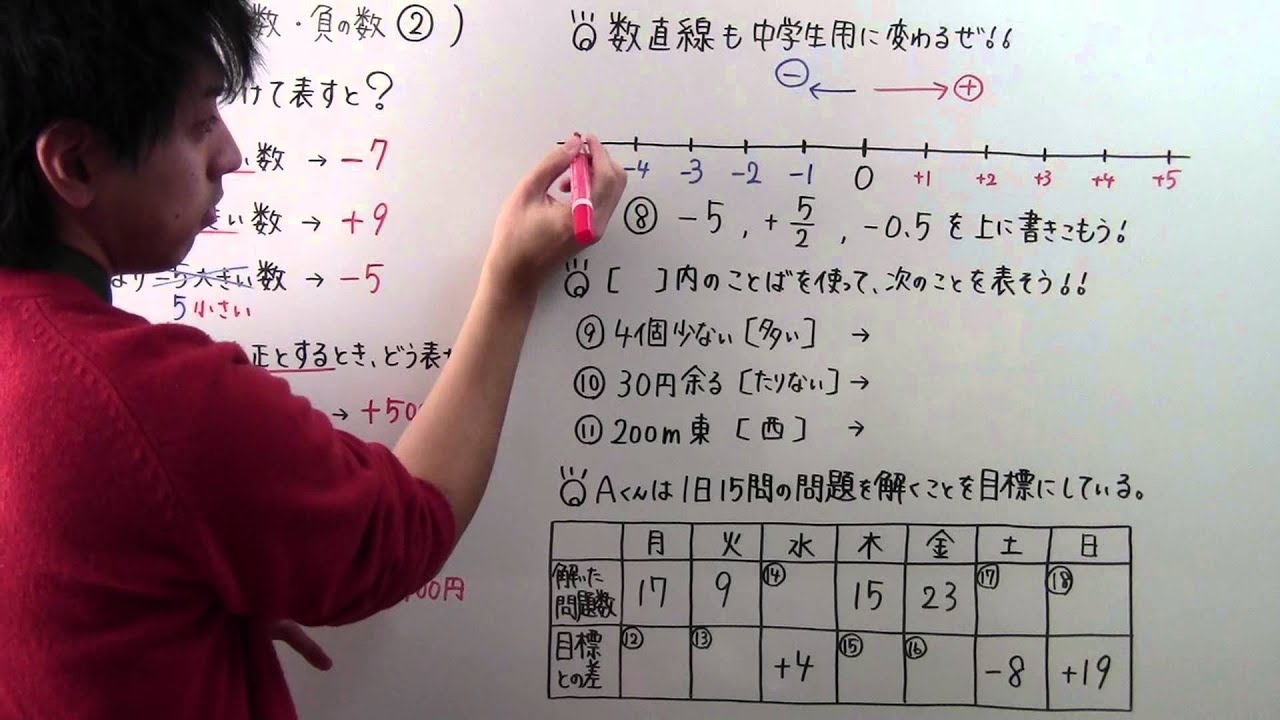 数・負の数②)
けて表すと?
い数 → −7
きい数 → +9
より −5大きい数 → −5
5小さい
正とするとき、どう表
→ +500
00円
数直線も中学生用に変わるぜ!!
− ← → +
−4 −3 −2 −1 0 +1 +2 +3 +4 +5
⑧ −5, +5/2, −0.5 を上に書きこもう!
[ ]内のことばを使って、次のことを表そう!!
⑨ 4個少ない[多い] →
⑩ 30円余る[たりない] →
⑪ 200m東 [西] →
Aくんは1日15問の問題を解くことを目標にしている。
月 火 水 木 金 土 日
解いた問題数 17 9 ⑭ 15 23 ⑰ ⑱
目標との差 ⑫ ⑬ +4 ⑮ ⑯ −8 +19